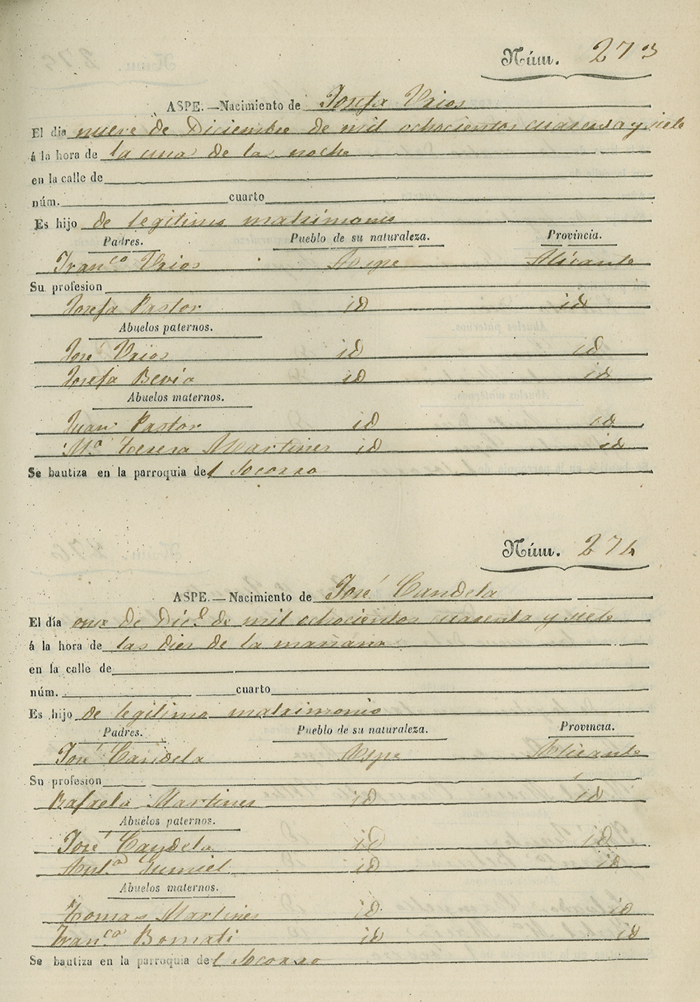 Núm. 273
ASPE.—Nacimiento de Josefa Vrios
El dia nueve de Diciembre de mil ochocientos cuarenta y siete
á la hora de la una de la noche
en la calle de
núm. cuarto
Es hijo de legitimo matrimonio
Padres. Pueblo de su naturaleza. Provincia.
Franco Vrios Aspe Alicante
Su profesion
Josefa Pastor id id
Abuelos paternos.
José Vrios id id
Josefa Bevia id id
Abuelos maternos.
Juan Pastor id id
Ma Teresa Martines id id
Se bautiza en la parroquia del Socorro
Núm. 274
ASPE.—Nacimiento de José Candela
El día onse de Dice de mil ochocientos cuarenta y siete
á la hora de las dies de la mañana
en la calle de
núm. cuarto
Es hijo de legitimo matrimonio
Padres. Pueblo de su naturaleza. Provincia.
José Candela Aspe Alicante
Su profesion
Rafaela Martines id id
Abuelos paternos.
José Candela id id
Anta id id
Abuelos maternos.
Tomas Martines id id
Franca Bomati id id
Se bautiza en la parroquia del Socorro